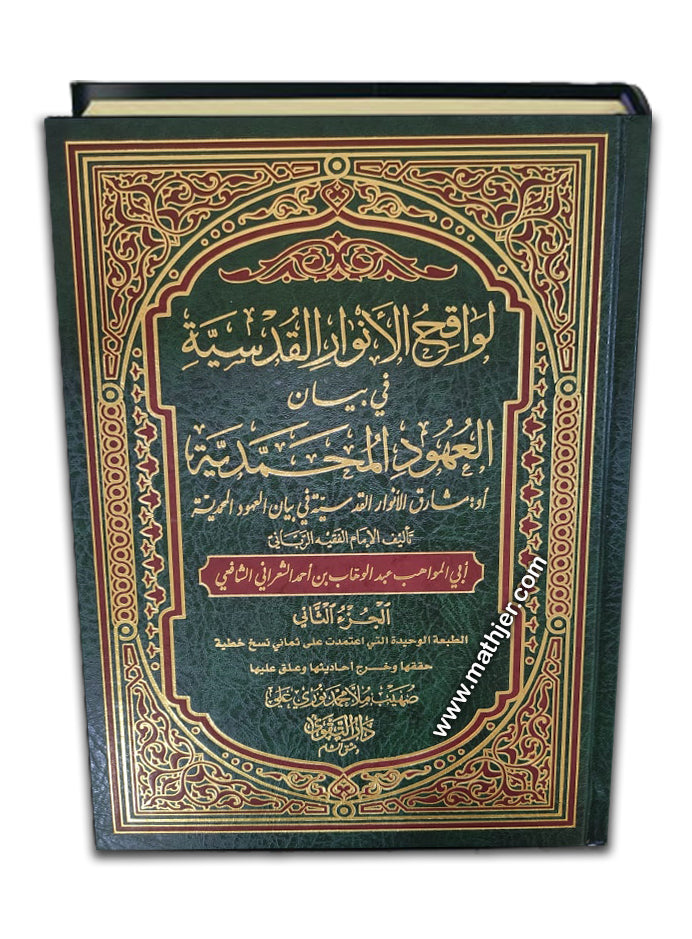 لواقح الأنوار القدسية
في بيان
العهود المحمدية
أو: مشارق الأنوار القدسية في بيان العهود المحمدية
تأليف الإمام الفقيه الرباني
أبي المواهب عبد الوهاب بن أحمد الشعراني الشافعي
الجزء الثاني
الطبعة الوحيدة التي اعتمدت على ثماني نسخ خطية
حققها وخرج أحاديثها وعلق عليها
صهيب ملا محمد نوري علي
دار التقوى
دمشق الشام
www.mathjer.com